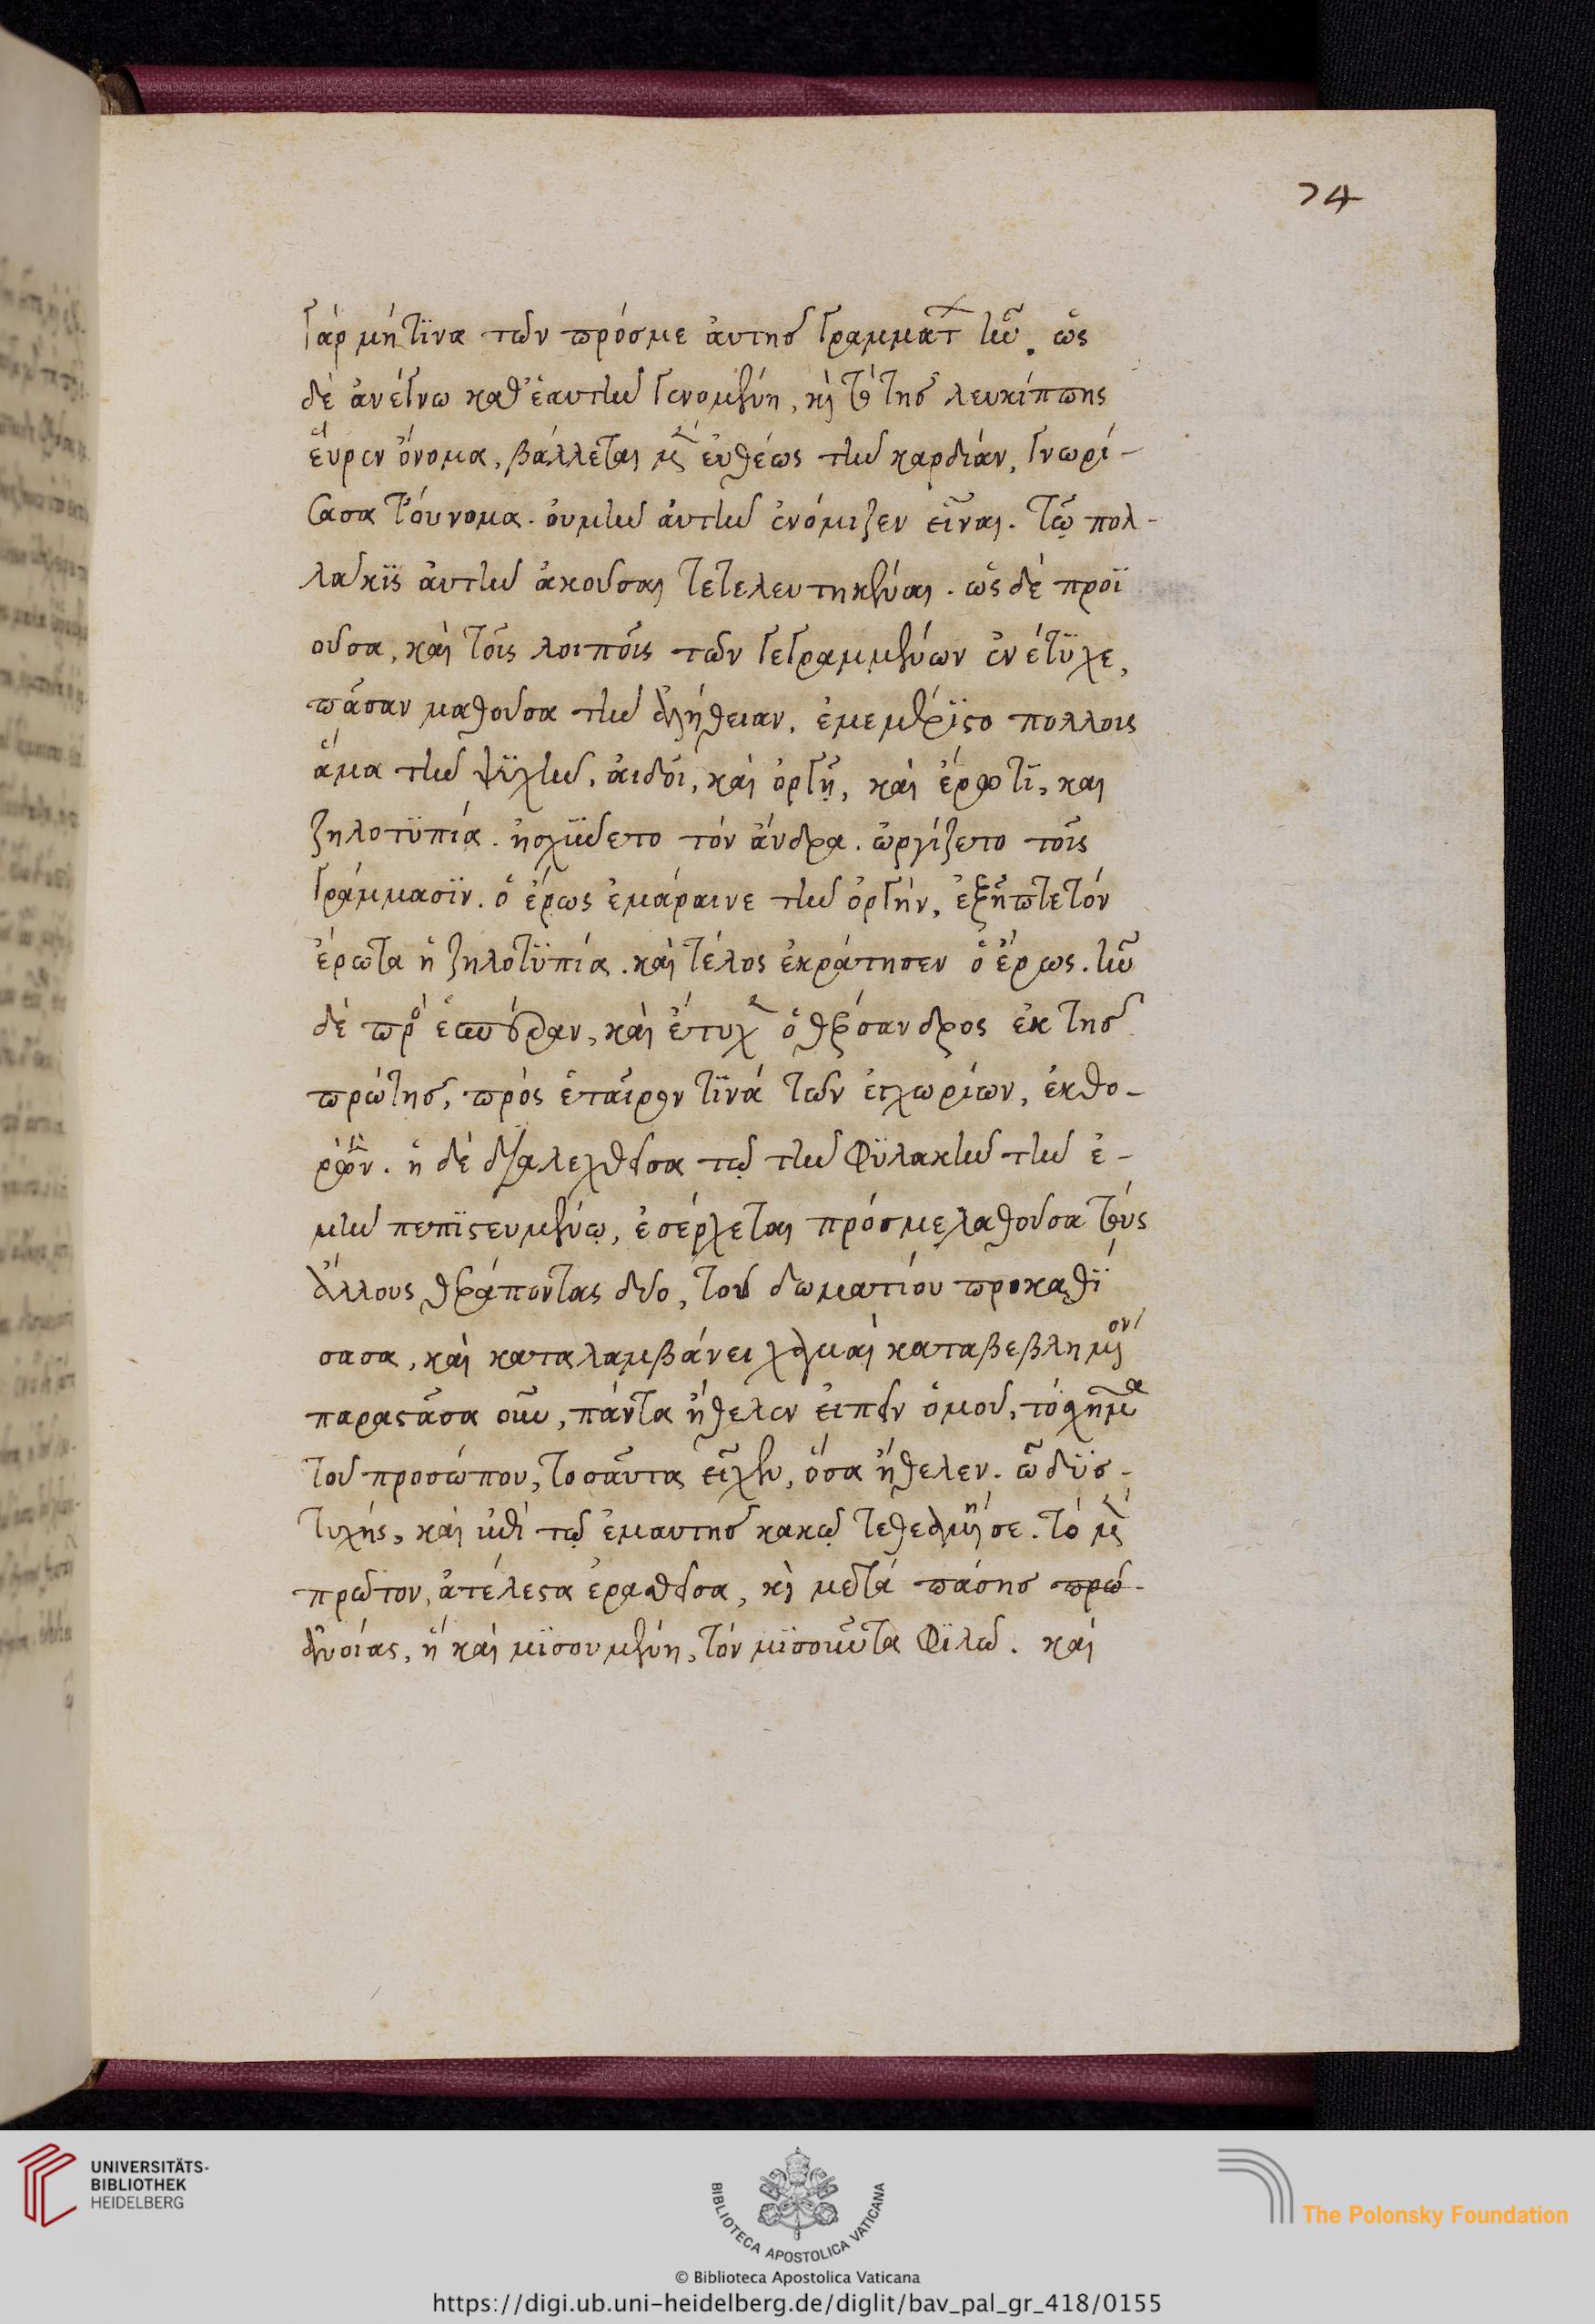 74
γάρ μή τϊνα τῶν πρόσμε ἀυτῆς γραμμάτ ἦν. ὡς
δὲ ἀνέγνω καθ' ἑαυτὴν γενομένη, κὶ τὸ τῆς λευκίππης
ἕυρεν ὄνομα, βάλλεται μὲν ἐυθέως τὴν καρδιάν, γνωρί-
σασα τ' όυνομα. όυμὴν ἀυτὴν ἐνόμιζεν εἶναι. τῷ πολ-
λακῒς ἀυτὴν ἀκοῦσαι τετελευτηκέναι. ὡς δὲ προϊ
οῦσα, καὶ τοῖς λοιποῖς τῶν γεγραμμένων ἐνέτϋχε,
πᾶσαν μαθοῦσα τὴν ἀλήθειαν, ἐμεμέρϊστο πολλοις
ἅμα τὴν ψϋχὴν, ἀιδοῖ, καὶ ὀργῇ, καὶ ἔρωτϊ, και
ζηλοτϋπία. ἠσχύνετο τὸν ἄνδρα. ὠργίζετο τοῖς
γράμμασϊν. ὁ ἔρως ἐμάραινε τὴν ὀργήν, ἐξῆπτε τόν
ἔρωτα ἡ ζηλοτϋπία. καὶ τέλος ἐκράτησεν ὁ ἔρως. ἦν
δὲ πρὸ ἑσπέραν, καὶ ἔτυχεν ὁ θέρσανδρος ἐκ τῆς
πρώτης, πρὸς ἑταῖρόν τϊνά τῶν ἐγχωρίων, ἐκθο-
ρῶν. ἡ δὲ διαλεχθεῖσα τῷ τὴν φϋλακὴν τὴν ἐ-
μὴν πεπϊστευμένῳ, ἐσέρχεται πρόσμε λαθοῦσα τοὺς
ἄλλους θεράποντας δύο, τοῦ δωματίου προκαθϊ
σασα, καὶ καταλαμβάνει χαμαὶ καταβεβλημένον
παραστᾶσα οὖν, πάντα ἤθελεν ἐιπεῖν ὁμοῦ, τὸ σχῆμα
τοῦ προσώπου, τοσαῦτα εἶχεν, ὅσα ἤθελεν. ὦ δϋσ-
τυχὴς, καὶ ἐπὶ τῷ ἐμαυτῆς κακῷ τεθεαμένη σε. τὸ μὲν
πρῶτον, ἀτέλεστα ἐρασθεῖσα, κὶ μετὰ πάσης πρώ-
ἀνοίας, ἣ καὶ μϊσουμένη, τὸν μϊσοῦντα φϊλῶ. καὶ
UNIVERSITÄTS-
BIBLIOTHEK
HEIDELBERG
BIBLIOTECA APOSTOLICA VATICANA
The Polonsky Foundation
© Biblioteca Apostolica Vaticana
https://digi.ub.uni-heidelberg.de/diglit/bav_pal_gr_418/0155